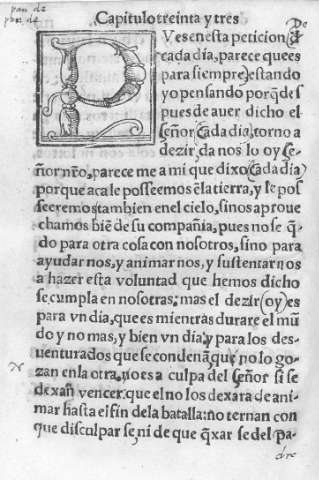 pan de
Capitulo treinta y tres
De
PVes en esta peticion (d
cada dia, parece que es
para siempre) estando
yo pensando porq̃ des
pues de auer dicho el
señor (Cada dia, torno a
dezir, da nos lo oy Se-
ñor nr̃o, parece me a mi que dixo (Cada dia)
porque aca le posseemos ẽ la tierra, y le pos
seeremos tambien en el cielo, si nos aproue
chamos biẽ de su compañia, pues no se q̃-
do para otra cosa con nosotros, sino para
ayudar nos, y animar nos, y sustentar nos
a hazer esta voluntad que hemos dicho
se cumpla en nosotras: mas el dezir (oy) es
para vn dia, que es mientras durare el mũ
do y no mas, y bien vn dia, y para los des-
uenturados que se condenã, que no lo go-
zan en la otra, no es a culpa del Señor si se
dexã vencer, que el no los dexara de ani-
mar hasta el fin de la batalla: no ternan con
que disculpar se, ni de que q̃xar se del pa-
dre